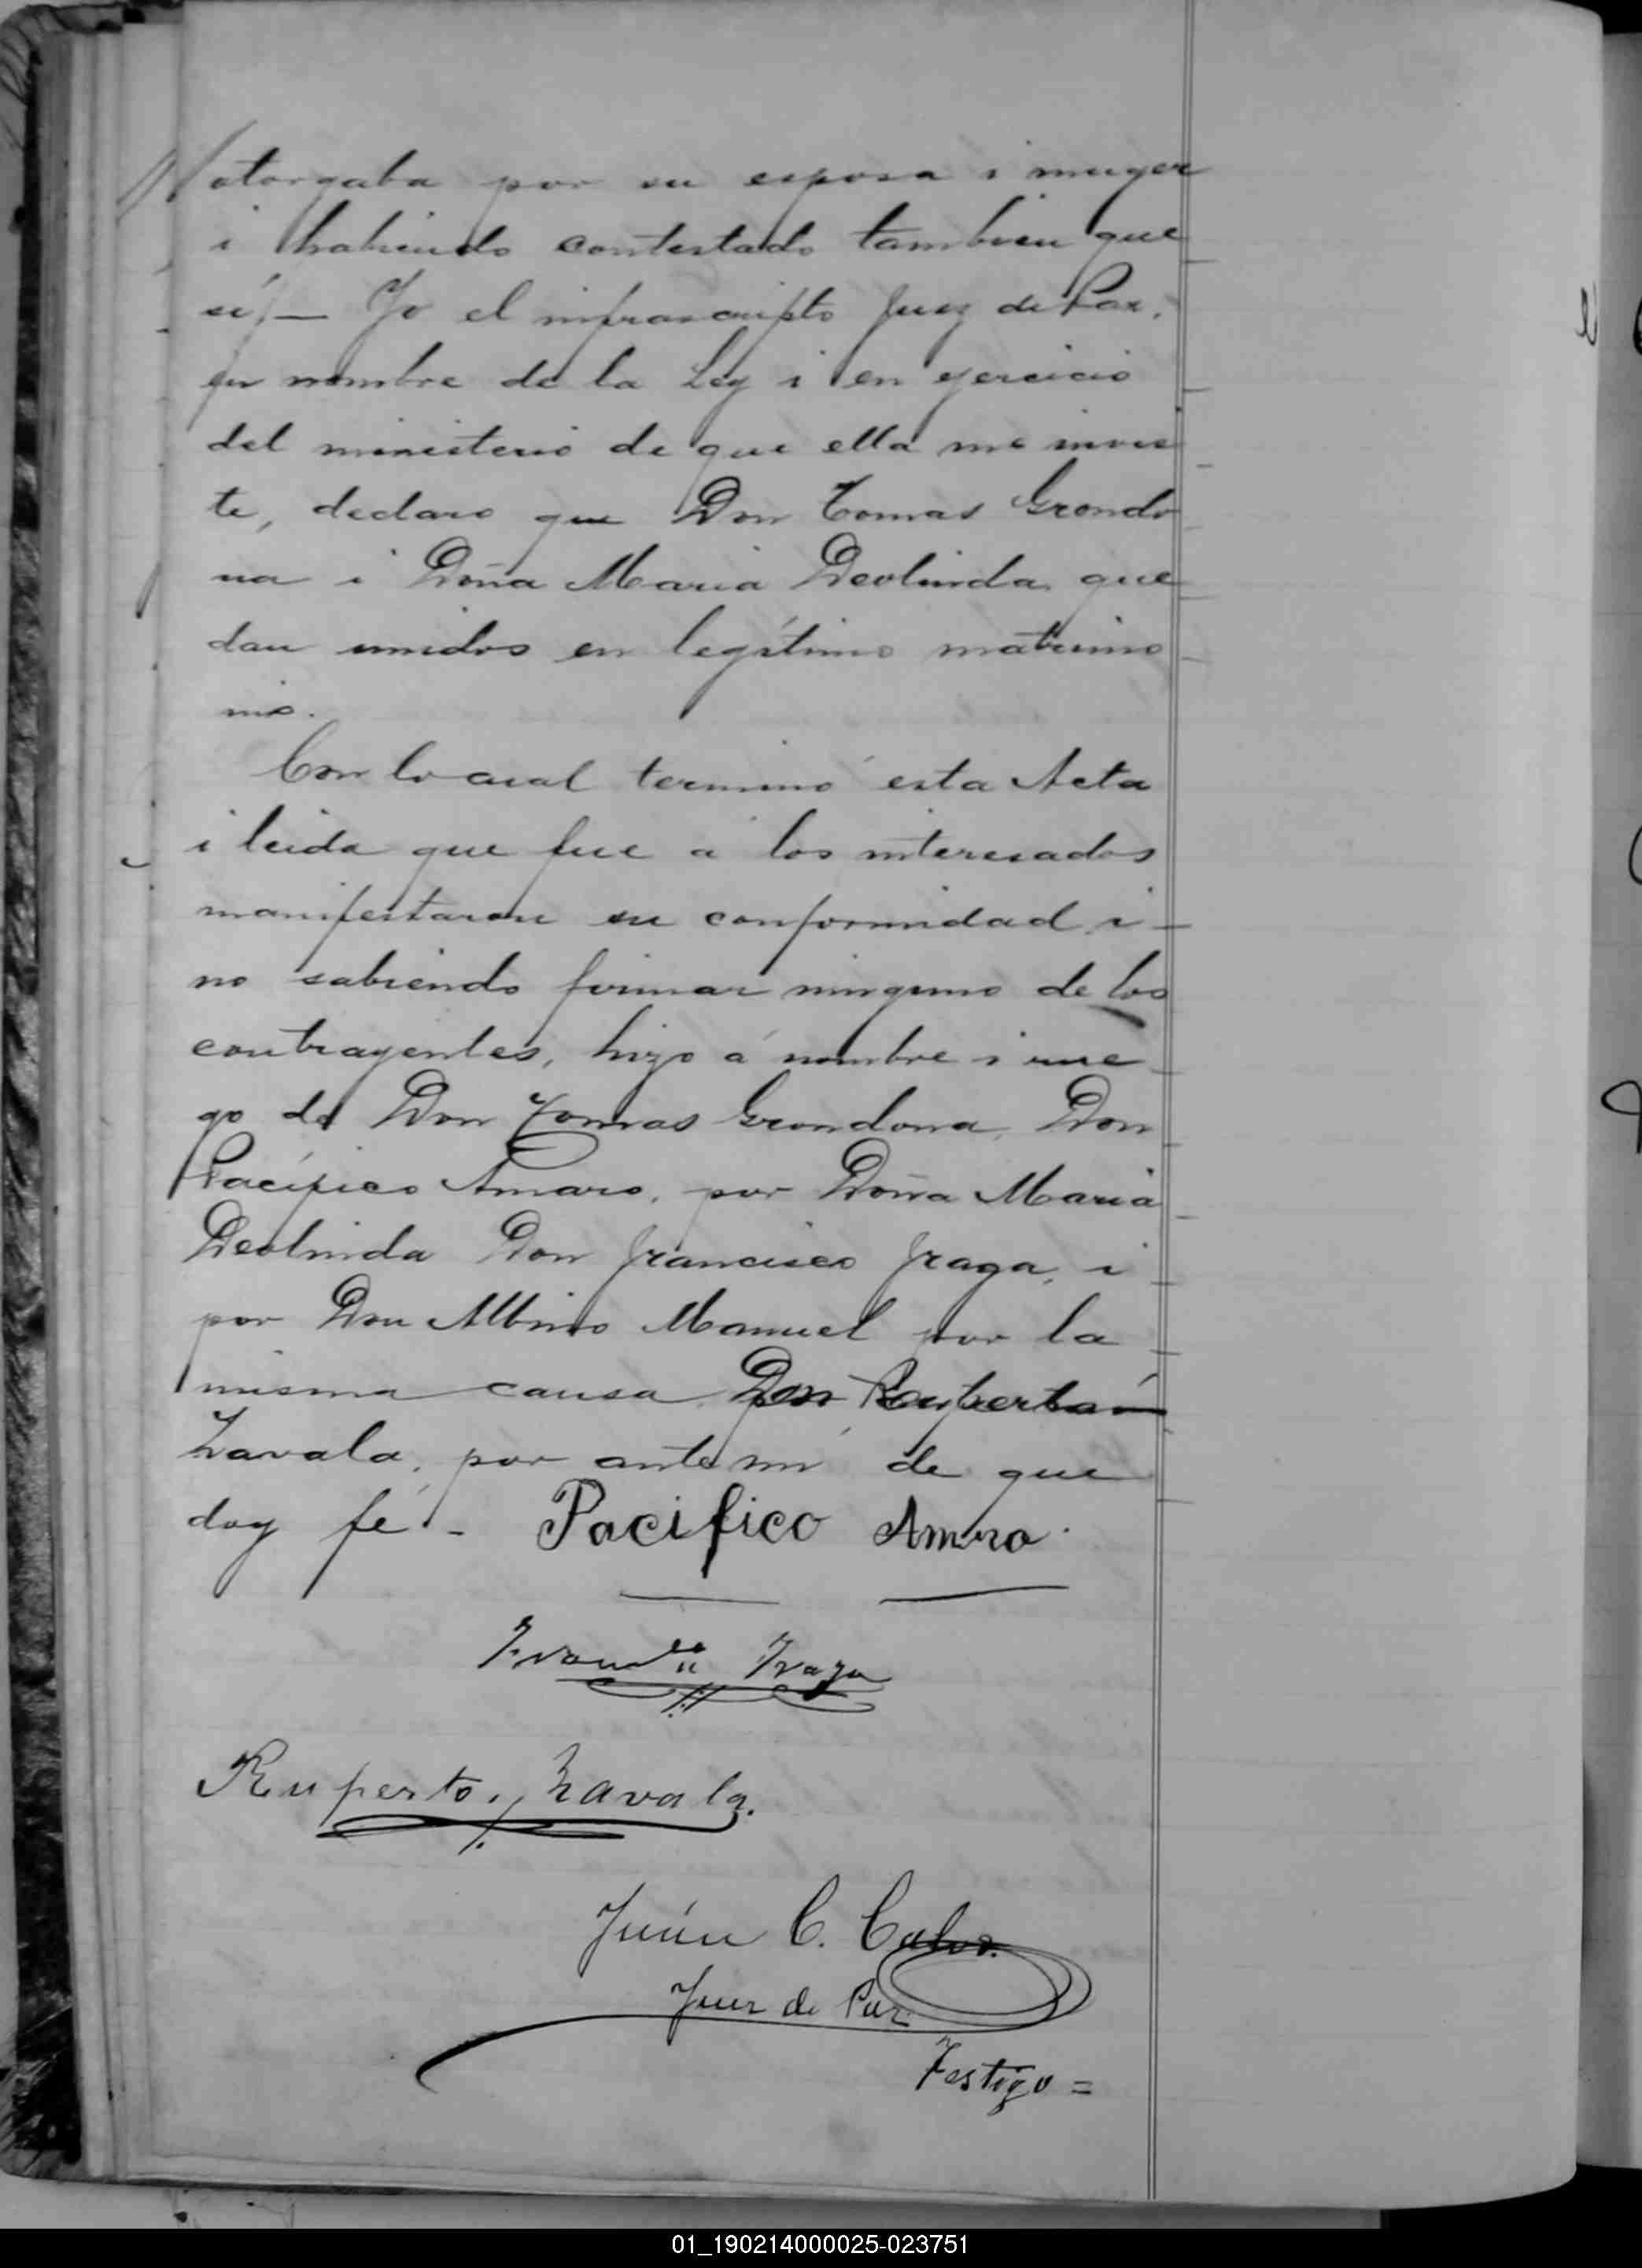 otorgaba por su esposa i muger
i habiendo contestado tambien que
sí,— Yo el infrascripto Juez de Paz,
en nombre de la Ley i en ejercicio
del ministerio de que ella me invis
te, declaro que Don Tomas Grondo
na i Doña Maria Deolinda que
dan unidos en legítimo matrimo
nio.
Con lo cual terminó esta Acta
i leida que fue a los interesados
manifestaron su conformidad i—
no sabiendo firmar ninguno de los
contrayentes, hizo á nombre i rue
go de Don Tomas Grondona, Don
Pacífico Amaro, por Doña Maria
Deolinda Don Francisco Fraga, i
por Don Albino Manuel por la
misma causa Don
Zavala, por ante mí de que
doy fé.- Pacifico Amaro.
Franco Fraga
Ruperto Zavala.
Juán C. Calvo.
Juez de Paz
Testigo =
01_190214000025-023751